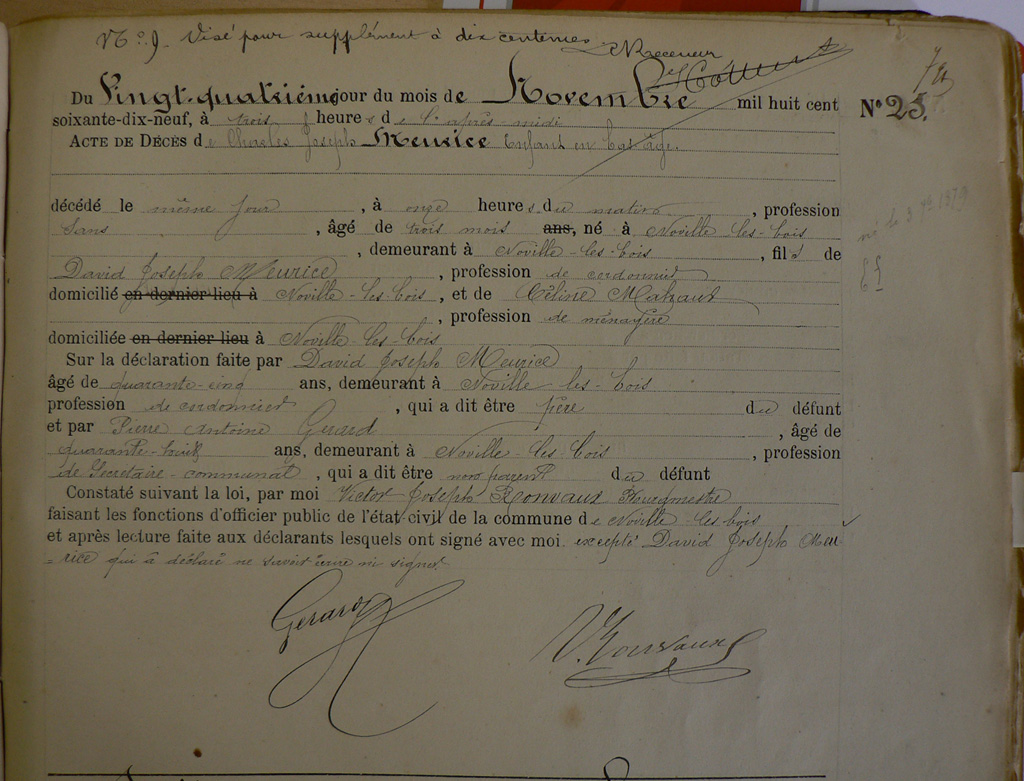 N° 9. Visé pour supplément à dix centimes
Le Receveur
Du Vingt-quatrième jour du mois de Novembre mil huit cent
N° 25.
soixante-dix-neuf, à trois heures de l'après-midi
ACTE DE DÉCÈS de Charles Joseph Meurice Enfant en bas âge.
décédé le même jour, à onze heures du matin, profession
Sans, âgé de trois mois ans, né à Noville les-bois
, demeurant à Noville-les-bois, fils de
David Joseph Meurice, profession de cordonnier
domicilié en dernier lieu à Noville-les-bois, et de Céline Mahaux
, profession de ménagère
domiciliée en dernier lieu à Noville-les-bois
Sur la déclaration faite par David Joseph Meurice
âgé de quarante-cinq ans, demeurant à Noville les-bois
profession de cordonnier, qui a dit être père du défunt
et par Pierre Antoine Gerard, âgé de
quarante-huit ans, demeurant à Noville-les-bois, profession
de Secrétaire-communal, qui a dit être non parent du défunt
Constaté suivant la loi, par moi Victor Joseph Ronvaux Bourgmestre
faisant les fonctions d'officier public de l'état-civil de la commune de Noville-les-bois
et après lecture faite aux déclarants lesquels ont signé avec moi excepté David Joseph Meu
-rice qui a déclaré ne savoir écrire ni signer.
Gerard
V. Ronvaux